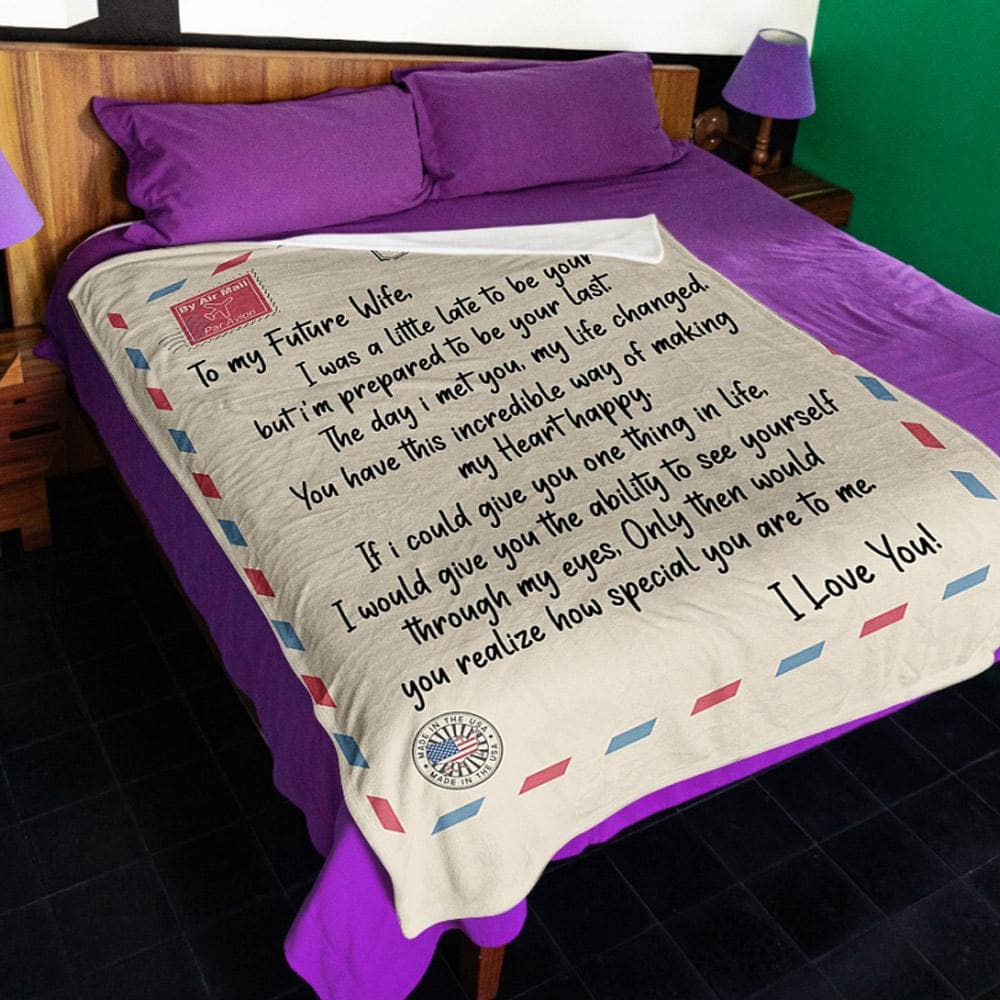 By Air Mail
Par Avion
To my Future Wife,
I was a little late to be your
but i'm prepared to be your last.
The day i met you, my life changed.
You have this incredible way of making
my Heart happy.
If i could give you one thing in life,
I would give you the ability to see yourself
through my eyes, Only then would
you realize how special you are to me.
I Love You!
MADE IN THE USA
MADE IN THE USA